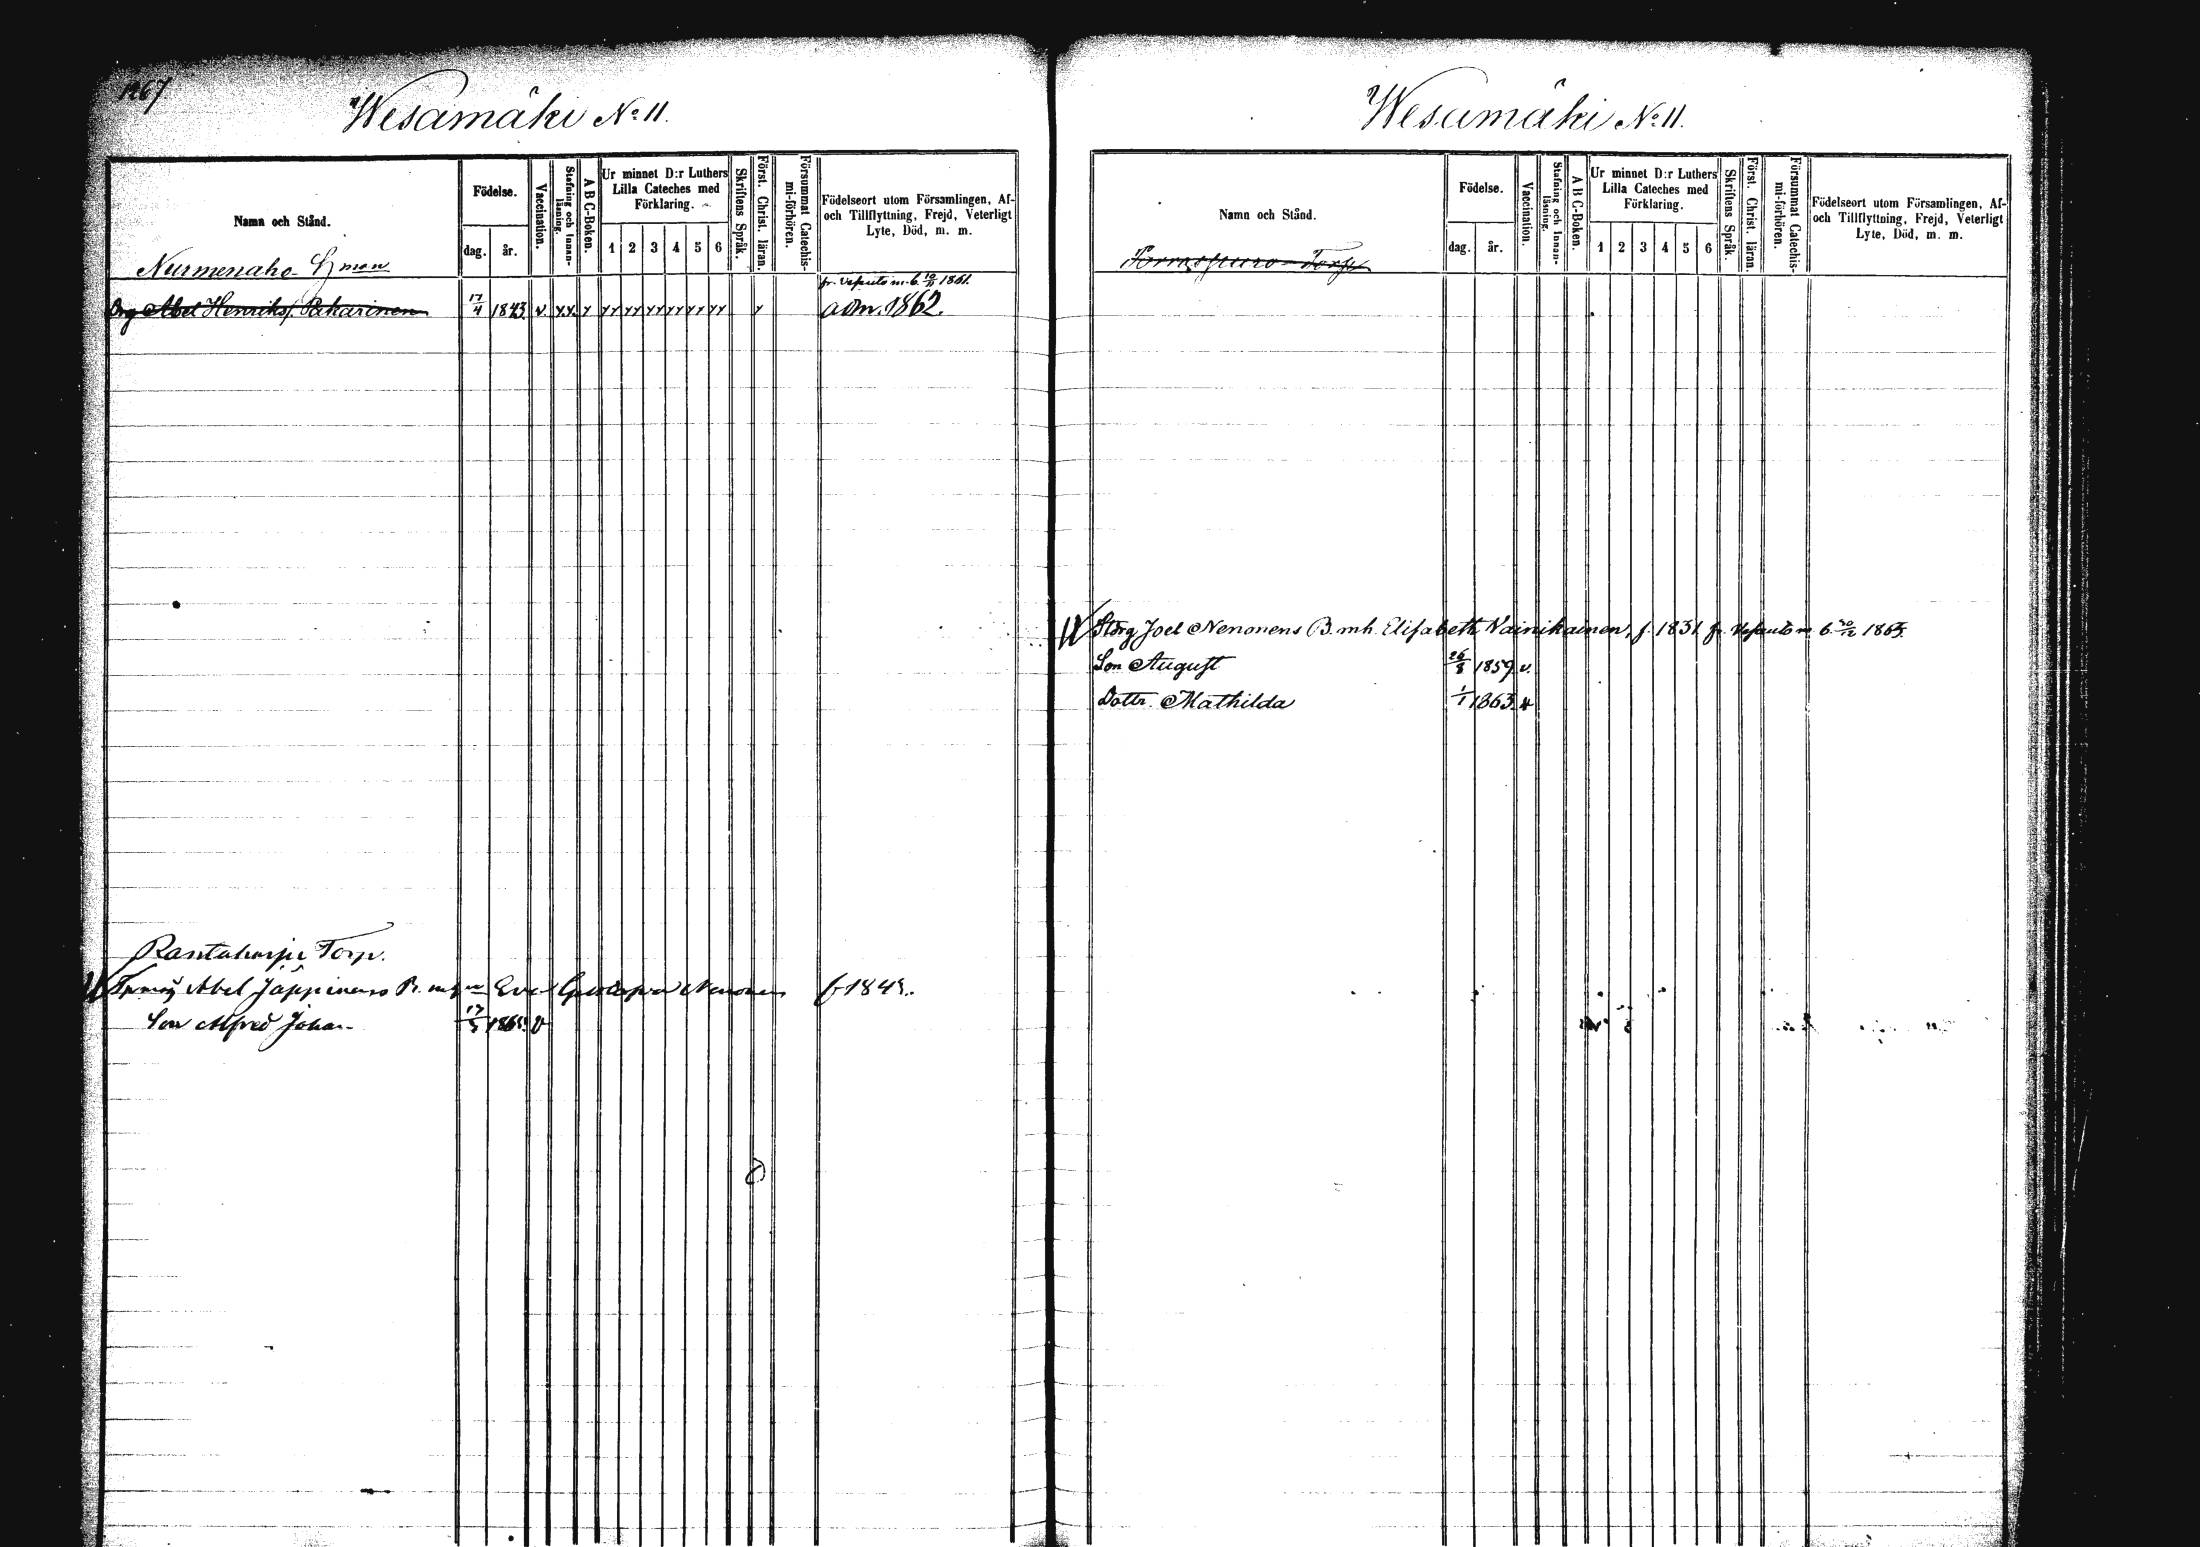 1267
Wesamäki No 11.
Namn och Stånd.
Födelse.
dag.
år.
Vaccination.
Stafning och Innan-
läsning.
A B C-Boken.
Ur minnet D:r Luthers
Lilla Cateches med
Förklaring.
1 2 3 4 5 6
Skriftens Språk.
Först. Christ. läran.
Försummat Catechis-
mi-förhören.
Födelseort utom Församlingen, Af-
och Tillflyttning, Frejd, Veterligt
Lyte, Död, m. m.
Nurmenaho
Abel Henrikss. Pakarinen 17/4 1843. v. adm. 1862.
1861.
Rantaharju Torp.
Abel Jäppinens Eva Nenonen
Son Alfred Johan v
Wesamäki No 11.
Namn och Stånd.
Födelse.
dag.
år.
Vaccination.
Stafning och Innan-
läsning.
A B C-Boken.
Ur minnet D:r Luthers
Lilla Cateches med
Förklaring.
1 2 3 4 5 6
Skriftens Språk.
Först. Christ. läran.
Försummat Catechis-
mi-förhören.
Födelseort utom Församlingen, Af-
och Tillflyttning, Frejd, Veterligt
Lyte, Död, m. m.
Torp
Joel Nenonens B. m h. Elisabeth Vainikainen, f. 1831
Son August 26/8 1859 v.
Dottr. Mathilda 1/1 1863.